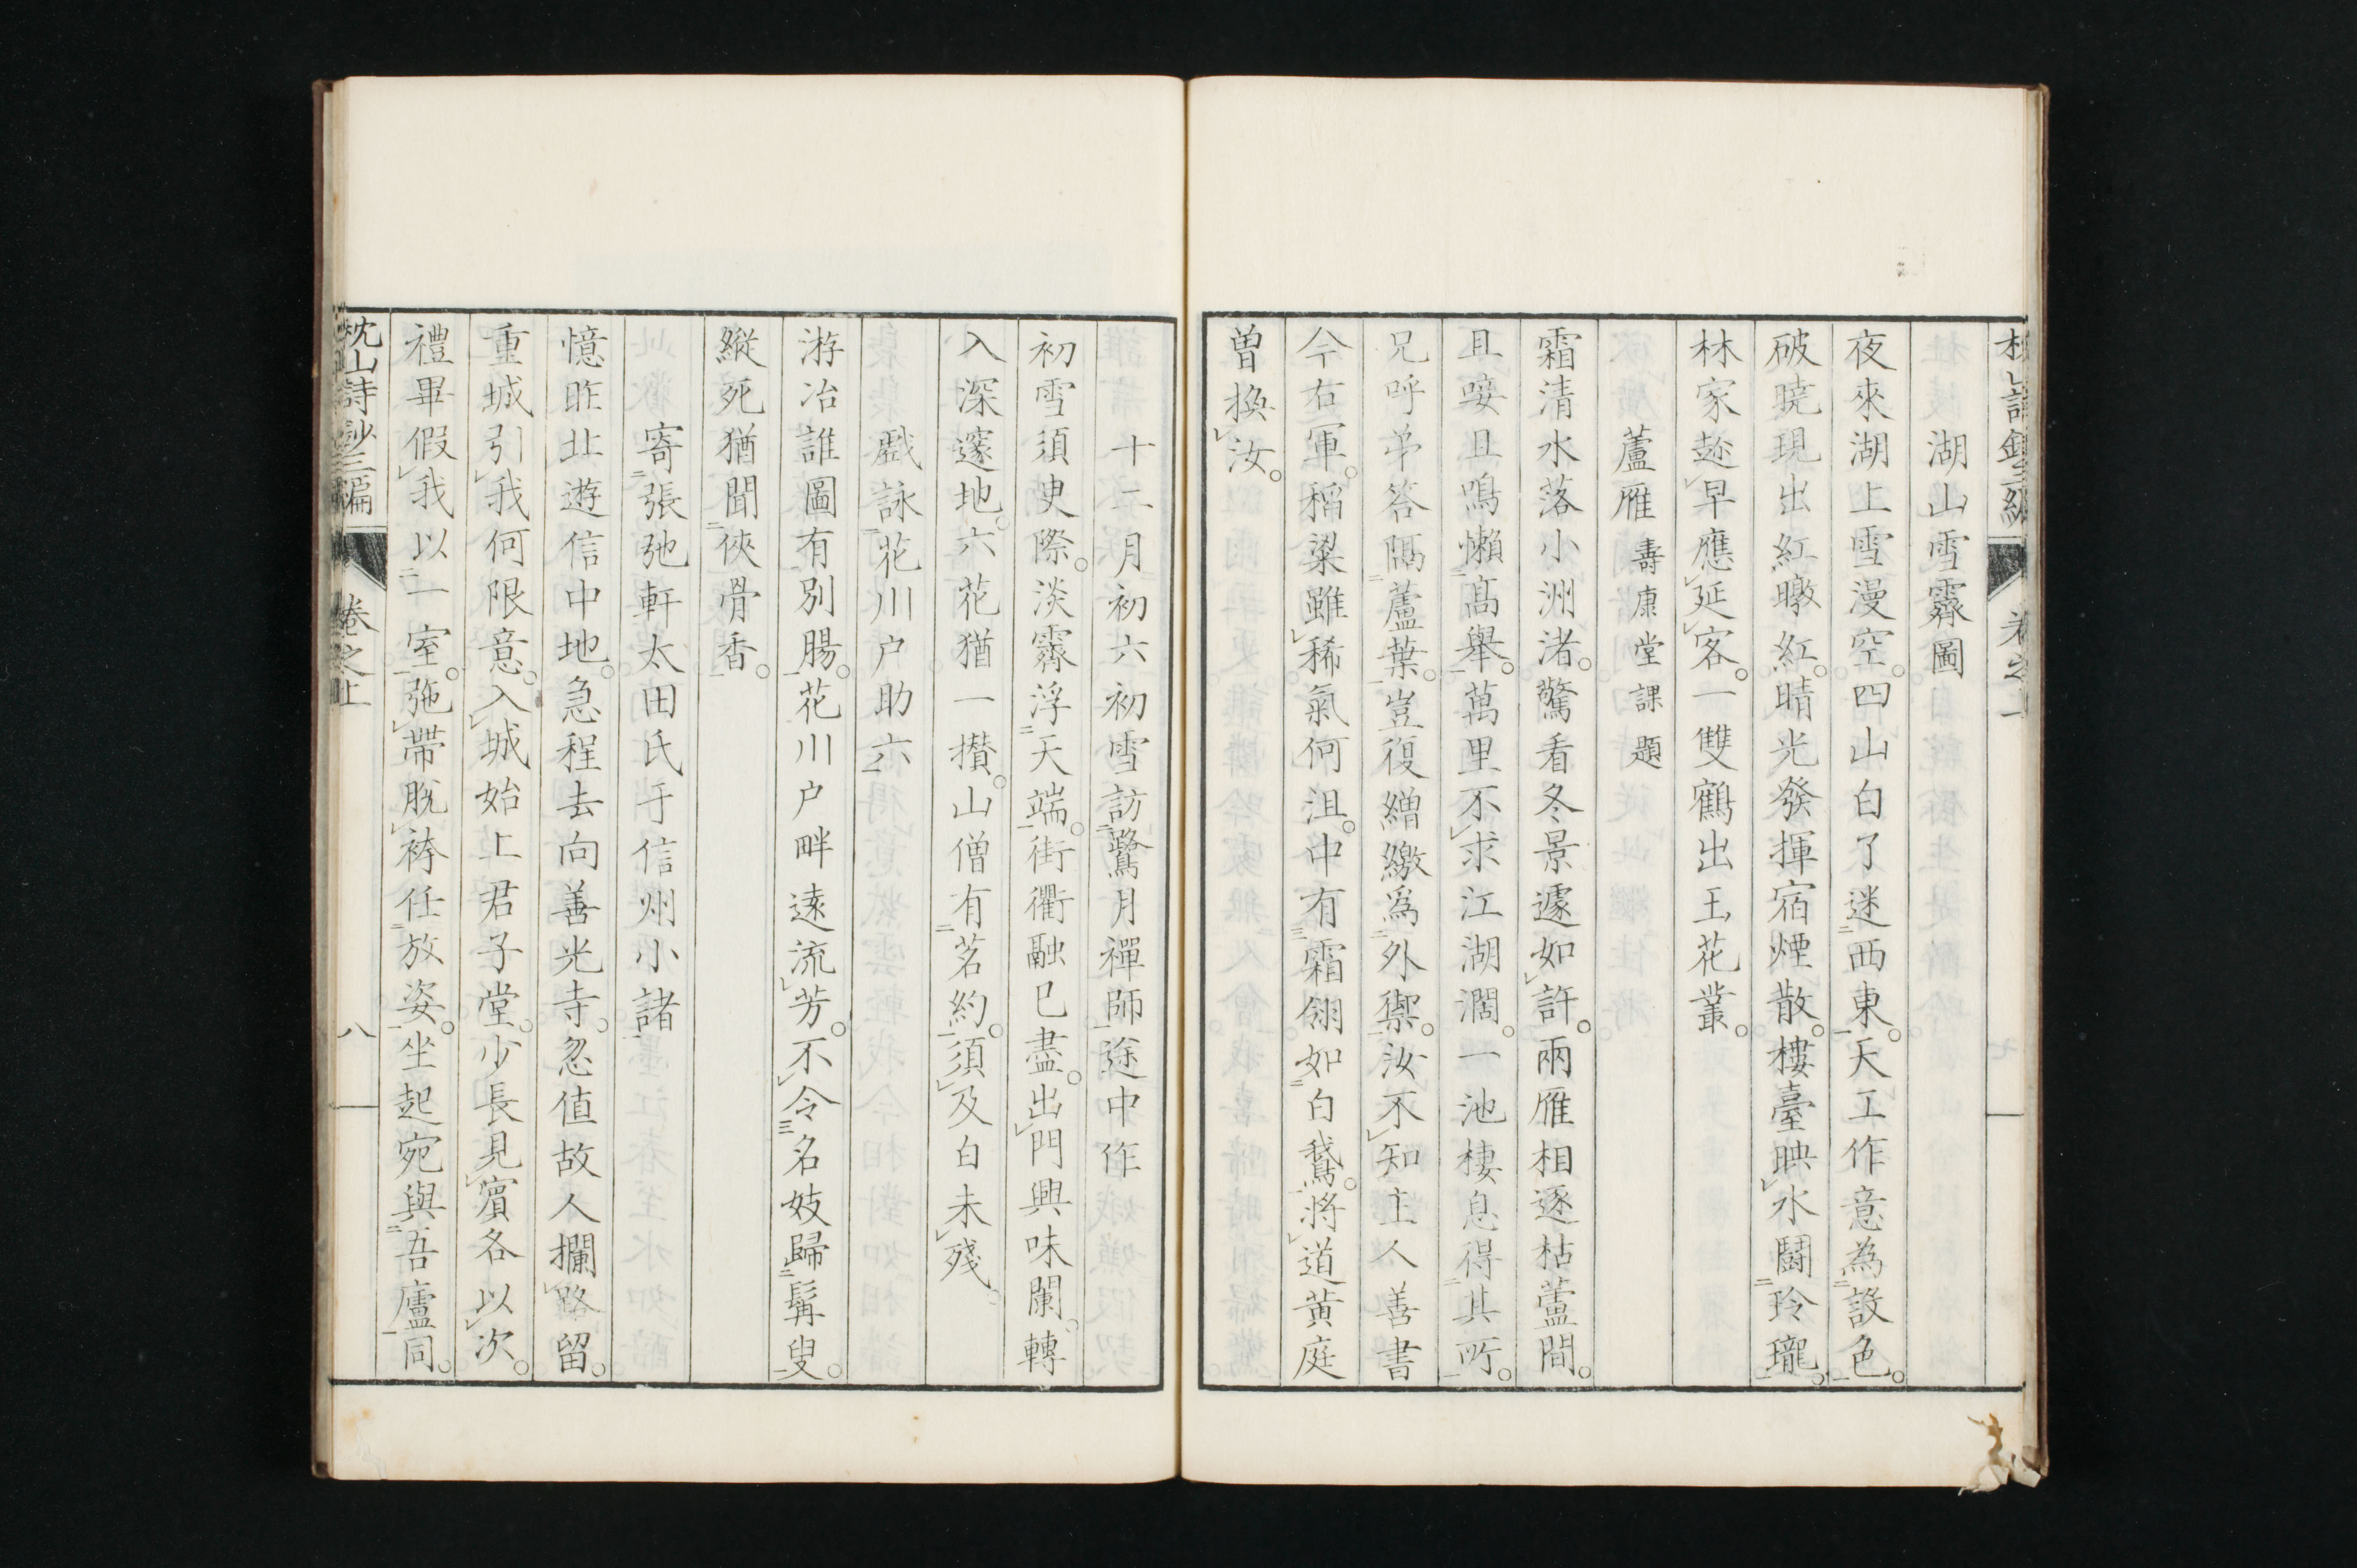 湖山雪霽圖
夜來湖上雪漫空。四山白了迷西東。天工作意為設色。
破曉現出紅暾紅。晴光發揮宿煙散。樓臺映水鬪玲瓏。
林家趁早應延客。一雙鶴出玉花叢。
蘆雁 壽康堂課題
霜清水落小洲渚。驚看冬景遽如許。兩雁相逐枯蘆間。
且唼且鳴懶高舉。萬里不求江湖濶。一池棲息得其所。
兄呼弟答隔蘆葉。豈復繒繳為外禦。汝不知主人善書
今右軍。稻粱雖稀氣何沮。中有霜翎如白鵞。將道黃庭
曽換汝。
十二月初六初雪訪鷺月禪師途中作
初雪須臾際。淡霽浮天端。街衢融已盡。出門興味闌。轉
入深邃地。六花猶一攢。山僧有茗約。須及白未殘。
戲詠花川戸助六
游冶誰圖有別腸。花川戸畔遠流芳。不令名妓歸髯叟。
縱死猶聞俠骨香。
寄張弛軒太田氏于信州小諸
憶昨北遊信中地。急程去向善光寺。忽值故人攔路留。
重城引我何限意。入城始上君子堂。少長見賓各以次。
禮畢假我以一室。弛帶脫袴任放姿。坐起宛與吾廬同。
枕山詩鈔三編 卷之上 八